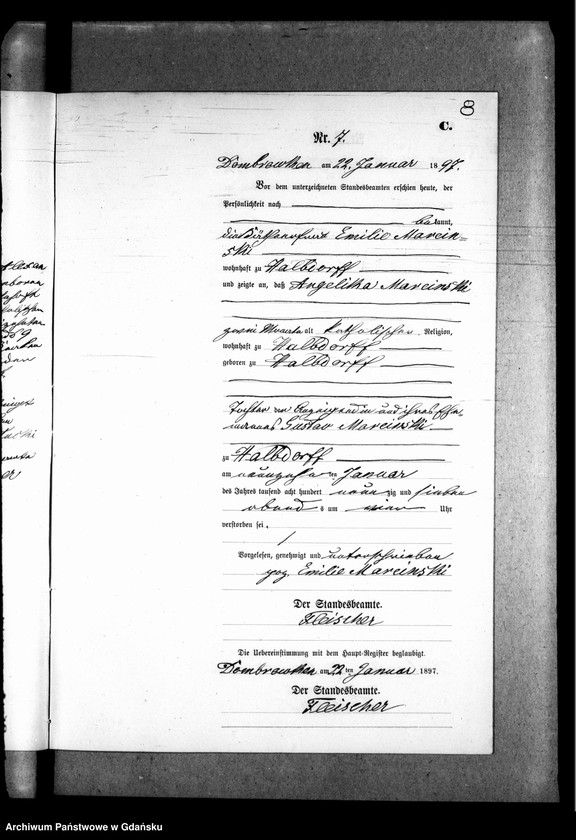 8
C.
Nr. 7.
Dombrowken am 22. Januar 1897.
Vor dem unterzeichneten Standesbeamten erschien heute, der
Persönlichkeit nach
bekannt,
die Käthnerfrau Emilie Marcin-
ski
wohnhaft zu Halbdorff
und zeigte an, daß Angelika Marcinski
zwei Monate alt katholischer Religion,
wohnhaft zu Halbdorff
geboren zu Halbdorff
Tochter der Anzeigenden und ihres Ehe
mannes Gustav Marcinski
zu Halbdorff
am neunzehnten Januar
des Jahres tausend acht hundert neunzig und sieben
abends um vier Uhr
verstorben sei.
Vorgelesen, genehmigt und unterschrieben
gez. Emilie Marcinski
Der Standesbeamte.
Fleischer
Die Uebereinstimmung mit dem Haupt-Register beglaubigt.
Dombrowken am 22ten Januar 1897.
Der Standesbeamte.
Fleischer
Archiwum Państwowe w Gdańsku